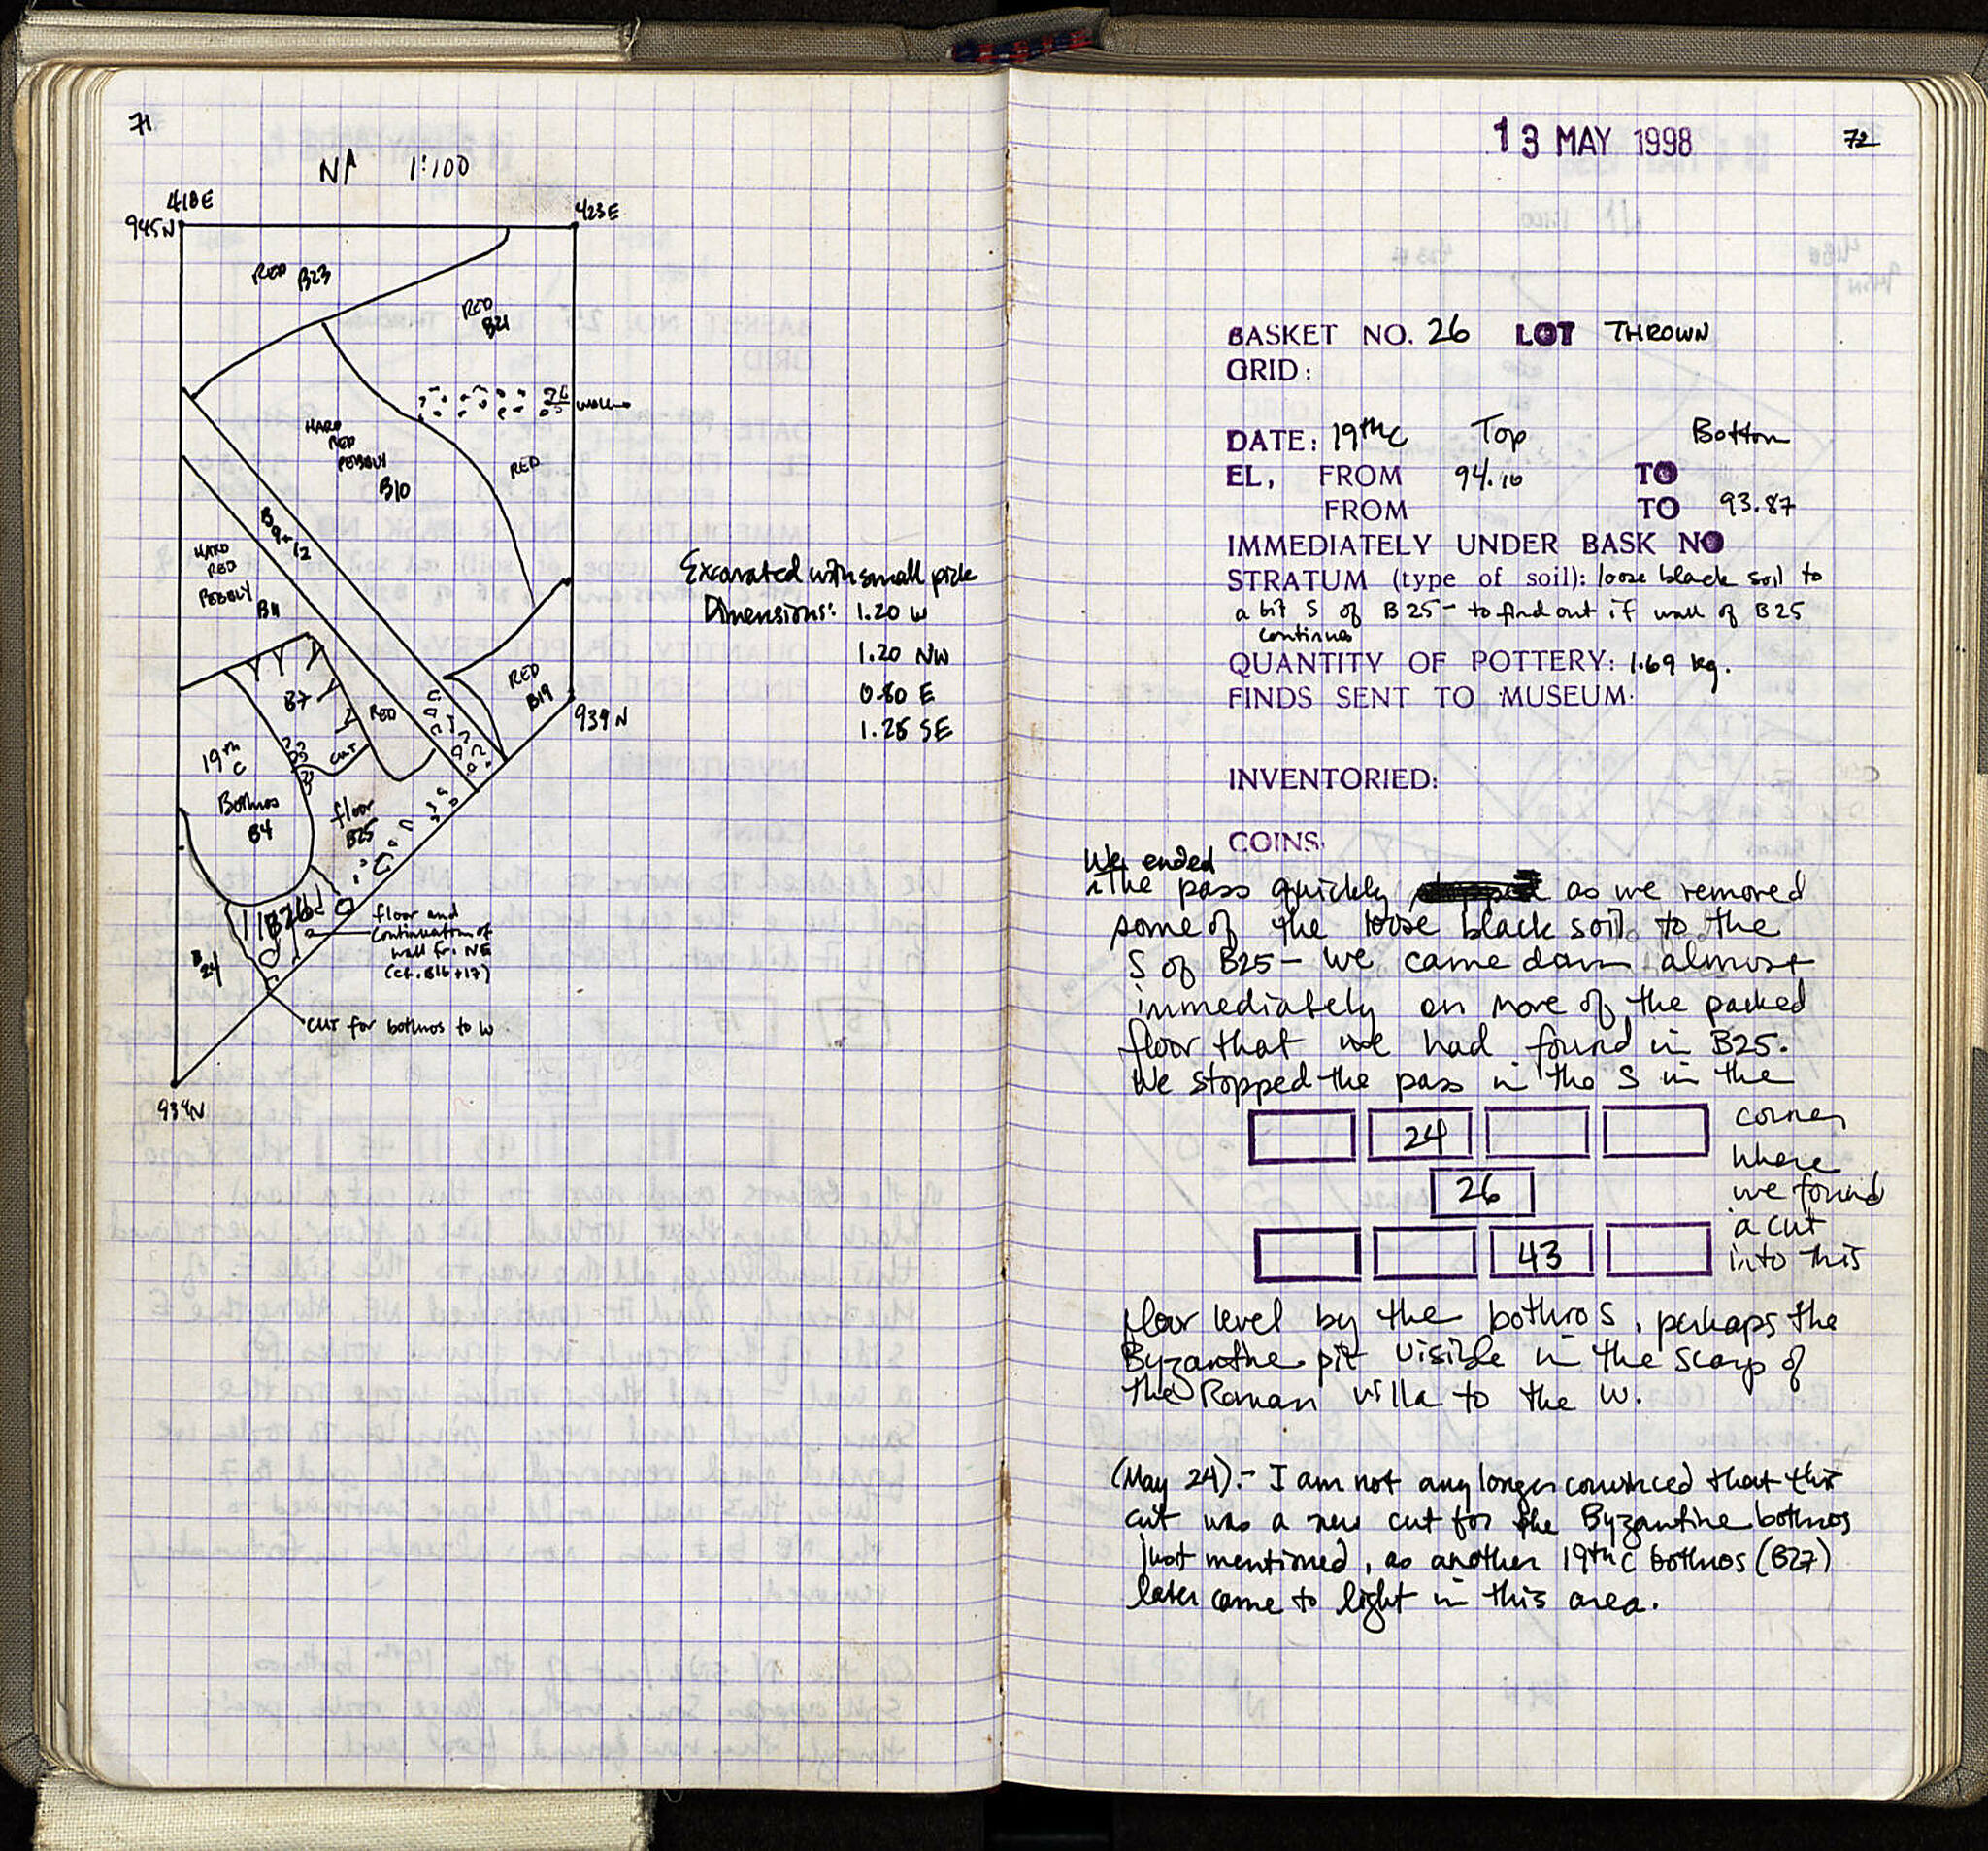 71
N 1:100
418E
423E
945N
RED B23
RED
B21
WALL
HARD
RED
PEBBLY
B10
RED
B
9+12
HARD
RED
PEBBLY
B11
RED
B19
939N
B7
RED
CUT
19th
C
Bothros
B4
floor
B25
B26
B
24
floor and
continuation of
wall fr. NE
(cf. B16+17)
CUT for bothros to W
934N
Excavated with small pick
Dimensions: 1.20 W
1.20 NW
0.80 E
1.28 SE
13 MAY 1998
72
BASKET NO. 26 LOT THROWN
GRID:
DATE: 19thc Top Bottom
EL, FROM 94.10 TO
FROM TO 93.87
IMMEDIATELY UNDER BASK NO
STRATUM (type of soil): loose black soil to
a bit S of B25 - to find out if wall of B25
continues
QUANTITY OF POTTERY: 1.69 kg.
FINDS SENT TO MUSEUM:
INVENTORIED:
COINS:
We ended
the pass quickly as we removed
some of the loose black soil to the
S of B25 - we came down almost
immediately on more of the packed
floor that we had found in B25.
We stopped the pass in the S in the
corner
where
we found
a cut
into this
24
26
43
floor level by the bothros, perhaps the
Byzanthe pit visible in the scarp of
the Roman villa to the W.
(May 24) - I am not any longer convinced that this
cut was a new cut for the Byzantine bothros
just mentioned, as another 19th C bothros (B27)
later came to light in this area.